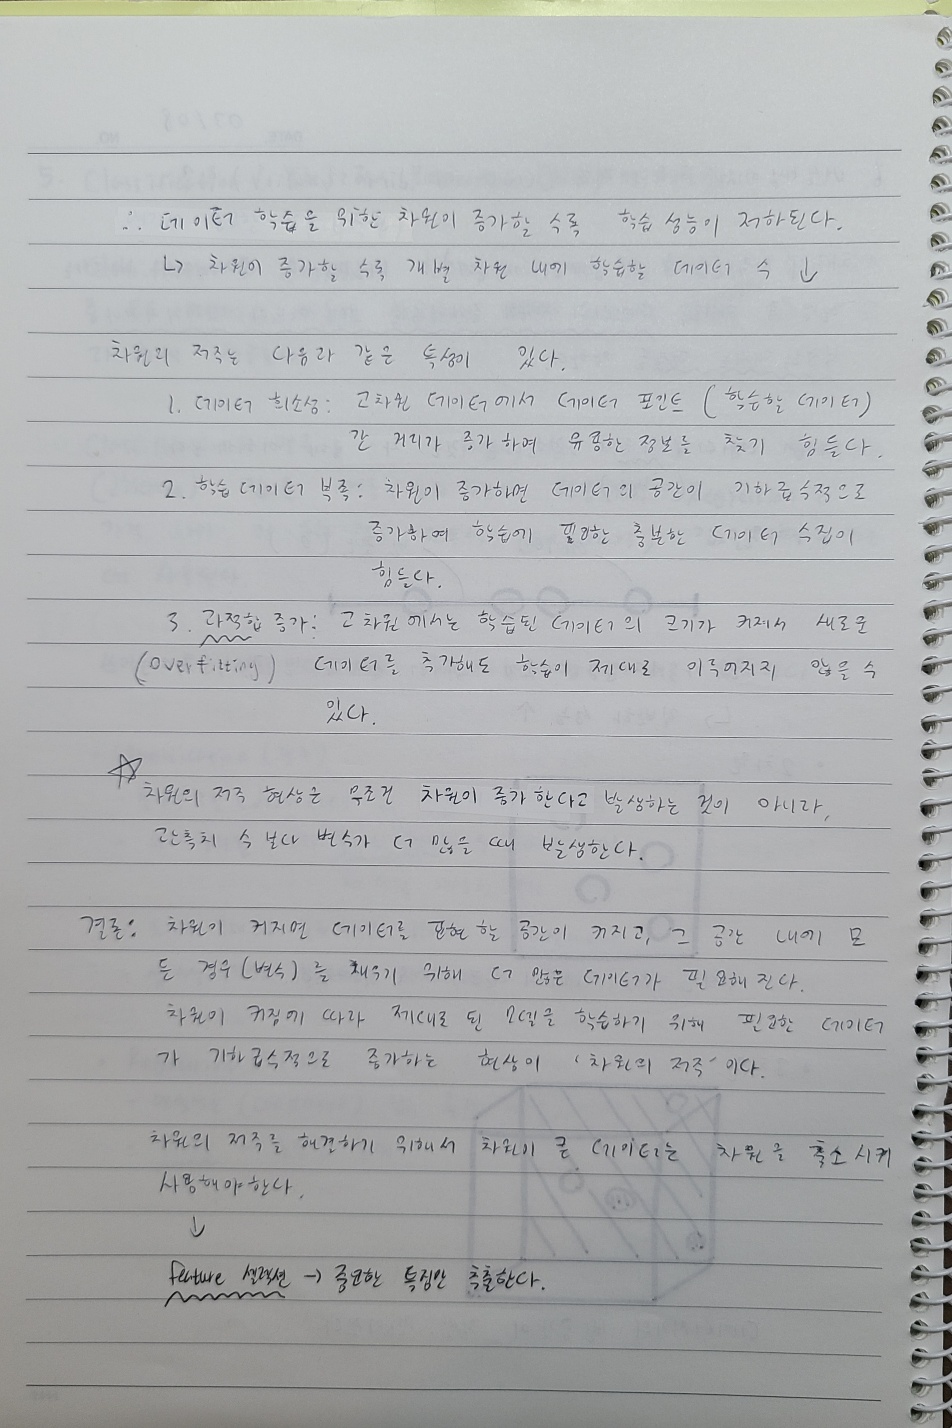 ∴ 데이터 학습을 위한 차원이 증가할 수록 학습 성능이 저하된다.
↳ 차원이 증가할 수록 개별 차원 내에 학습할 데이터 수 ↓
차원의 저주는 다음과 같은 특성이 있다.
1. 데이터 희소성: 고차원 데이터에서 데이터 포인트 (학습할 데이터)
간 거리가 증가하여 유용한 정보를 찾기 힘들다.
2. 학습 데이터 부족: 차원이 증가하면 데이터의 공간이 기하급수적으로
증가하여 학습에 필요한 충분한 데이터 수집이
힘들다.
3. 과적합 증가: 고차원에서는 학습된 데이터의 크기가 커져서 새로운
(Overfitting) 데이터를 추가해도 학습이 제대로 이루어지지 않을 수
있다.
☆ 차원의 저주 현상은 무조건 차원이 증가한다고 발생하는 것이 아니라,
관측치 수 보다 변수가 더 많을 때 발생한다.
결론: 차원이 커지면 데이터를 표현할 공간이 커지고, 그 공간 내에 모
든 경우(변수)를 채우기 위해 더 많은 데이터가 필요해진다.
차원이 커짐에 따라 제대로 된 모델을 학습하기 위해 필요한 데이터
가 기하급수적으로 증가하는 현상이 '차원의 저주'이다.
차원의 저주를 해결하기 위해서 차원이 큰 데이터는 차원을 축소시켜
사용해야한다.
↓
feature 셀렉션 → 중요한 특징만 추출한다.